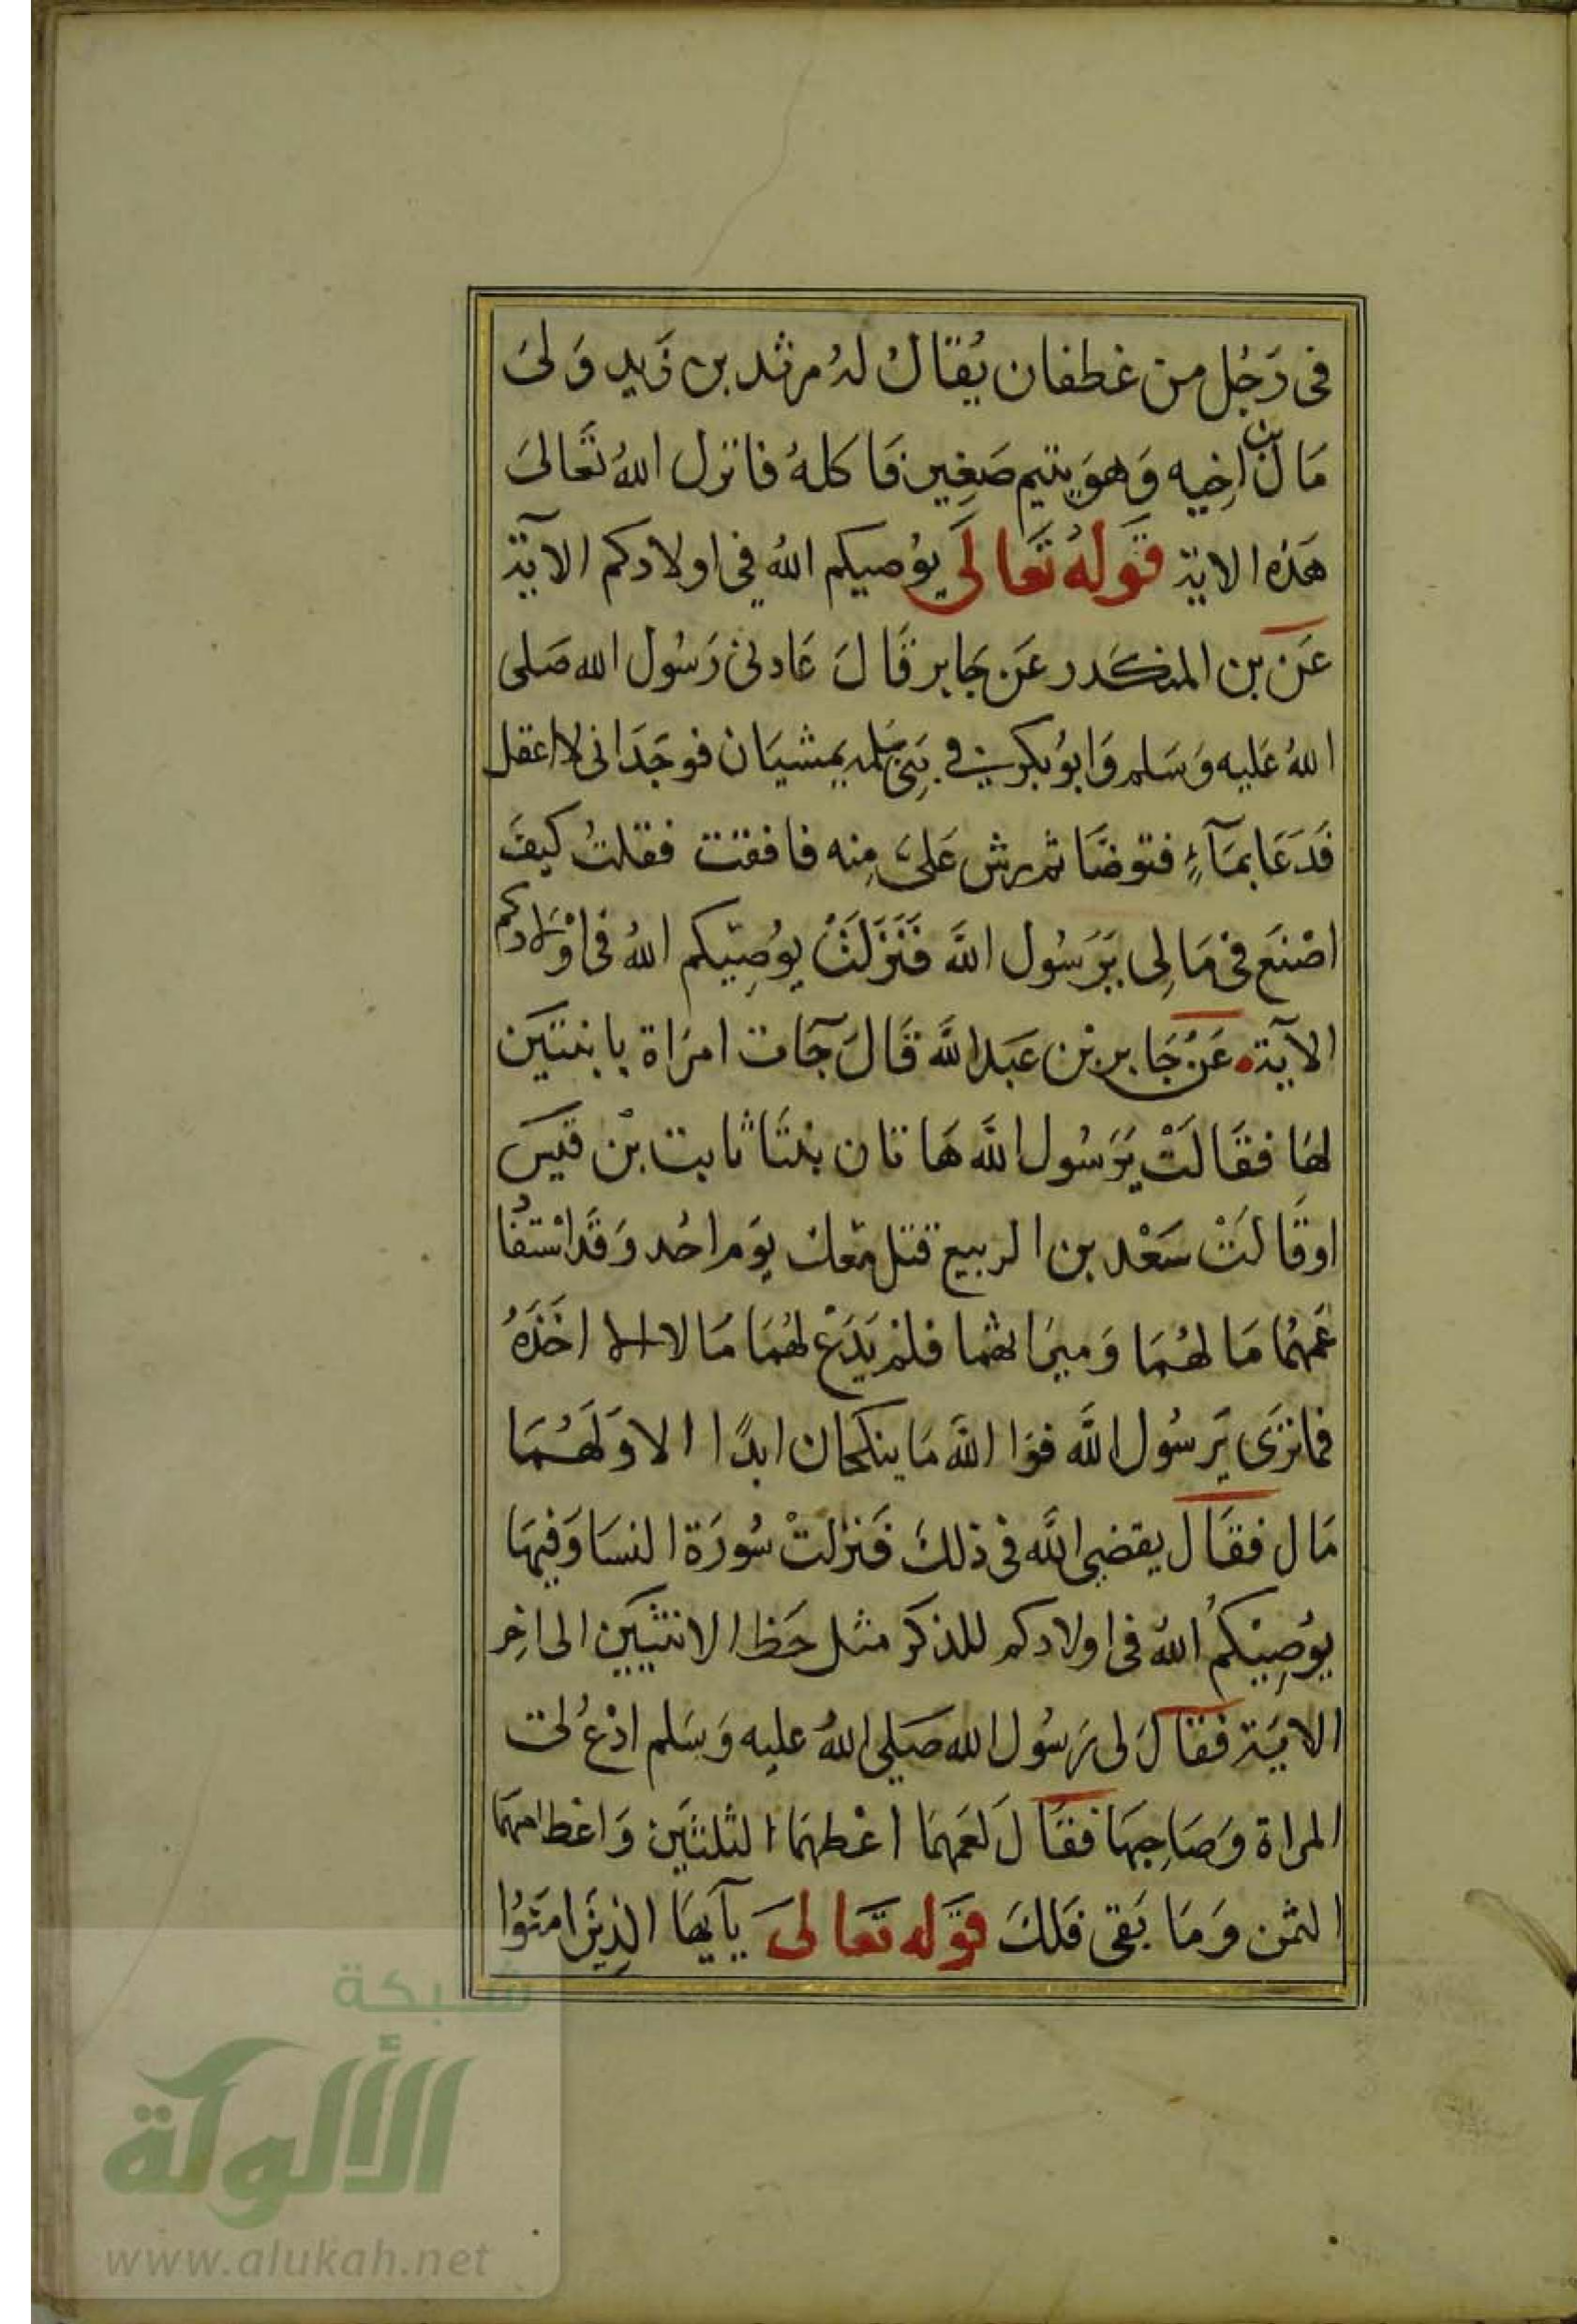 فى رَجُل من غطفان يُقَال لهُ مرثد بن زيد وَلىَ
مَال بن اخِيه وَهوَ يتيم صَغِير فاكلهُ فانزل اللهُ تعَالىَ
هَذه الاية قَولهُ تَعَالَى يوُصيكم اللهُ فى اولادكم الآية
عَن بن المنكدر عَن جَابر قَالَ عَادنى رَسُول الله صَلى
اللهُ عَليه وَسَلم وَابوُ بكر فى بَنِى سَلمه يمشيَان فوجَدَانى لا اعقل
فَدَعَا بمَآءٍ فتوضَّا ثم رش عَلىَّ مِنه فافقت فقلتُ كيفَ
اصْنَع فى مَالِى يَرَسُول اللَّه فَنَزَلَتْ يوُصِيكم اللهُ فى اوْلادكم
الآية عَنْ جَابر بْن عَبد اللَّه قَالَ جَآت امرَاة بابنتَين
لهَا فقَالَتْ يَرَسُول اللَّه هَاتان بنتَا ثابت بْن قيَس
اوقَالَتْ سَعْد بن الربيع قتل مَعك يَوم احُد وَقَد اسْتفَا
عَمهُما مَا لهُمَا وَميرَاثهما فلم يَدَعْ لهُمَا مَالا الا اخَذهُ
فما ترَى يَرسُول اللَّه فوَا اللَّه مَا ينكحَان ابدًا الا وَلَهُمَا
مَال فقَال يقضِى اللَّه فى ذلكَ فَنزلتْ سُورَة النسَا وَفيهَا
يوُصِيْكُم اللهُ فى اولادكم للذكرَ مثل حَظ الانثيَين الى اخِر
الايَة فقَالَ لى رَسُول الله صَلى اللهُ عليه وَسَلم ادْعُ لى
المراة وَصَاحِبهَا فقَالَ لعَمهمَا اعْطهمَا الثلثَين وَاعْط امهمَا
الثمن وَمَا بَقى فَلكَ قوَله تعَالىَ يآيهَا الذِينَ امَنوُا
شبكة
الألوكة
www.alukah.net